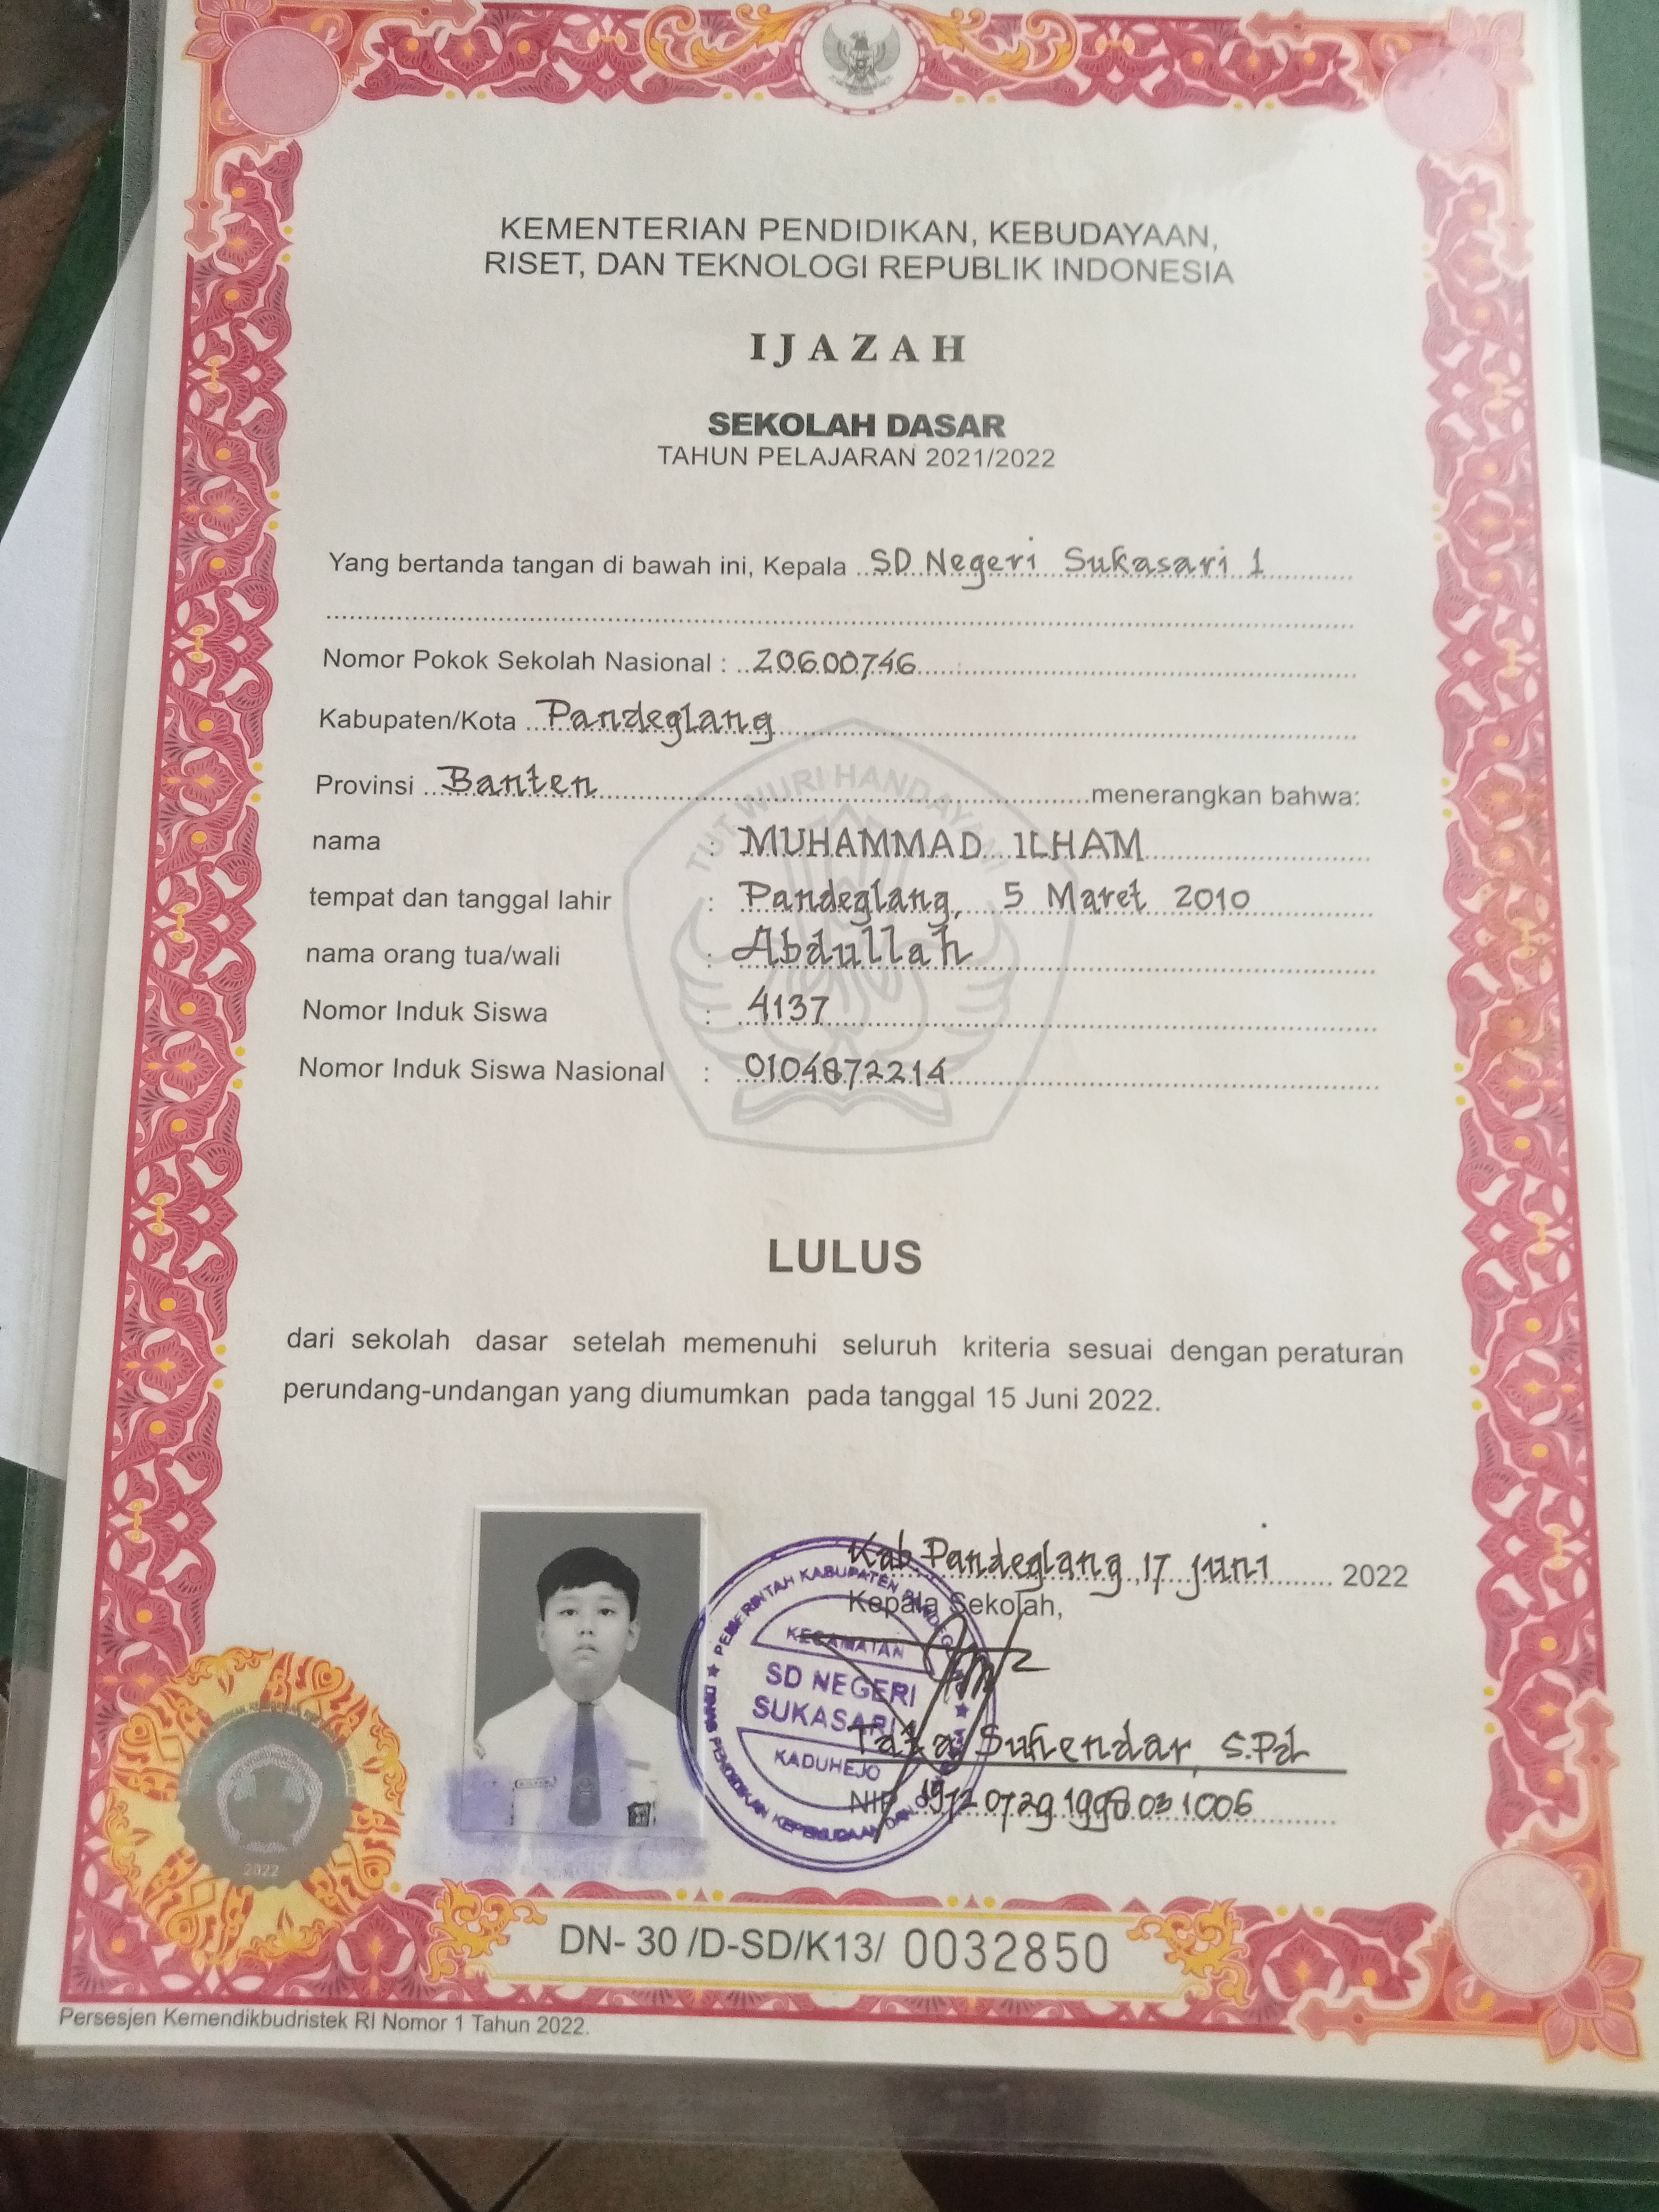 KEMENTERIAN PENDIDIKAN, KEBUDAYAAN,
RISET, DAN TEKNOLOGI REPUBLIK INDONESIA
IJAZAH
SEKOLAH DASAR
TAHUN PELAJARAN 2021/2022
Yang bertanda tangan di bawah ini, Kepala SD Negeri Sukasari 1
Nomor Pokok Sekolah Nasional : 20600746
Kabupaten/Kota Pandeglang
Provinsi Banten menerangkan bahwa:
TUT WURI HANDAYANI
nama : MUHAMMAD ILHAM
tempat dan tanggal lahir : Pandeglang, 5 Maret 2010
nama orang tua/wali : Abdullah
Nomor Induk Siswa : 4137
Nomor Induk Siswa Nasional : 0104872214
LULUS
dari sekolah dasar setelah memenuhi seluruh kriteria sesuai dengan peraturan
perundang-undangan yang diumumkan pada tanggal 15 Juni 2022.
Kab Pandeglang, 17 Juni 2022
Kepala Sekolah,
PEMERINTAH KABUPATEN
KECAMATAN
SD NEGERI
SUKASARI
KADUHEJO
DINAS PENDIDIKAN KEPEMUDAAN DAN
Suhendar, S.Pd
NIP. 19720729 199803 1006
2022
DN- 30 /D-SD/K13/ 0032850
Persesjen Kemendikbudristek RI Nomor 1 Tahun 2022.